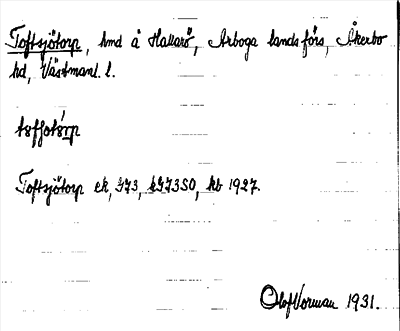 Toftsjötorp, hmd å Hallarö, Arboga landsförs, Åkerbo
hd, Västmanl. l.
Toftsjötorp ek, J73, kG73SO, kb 1927.
Olof Vorman 1931.